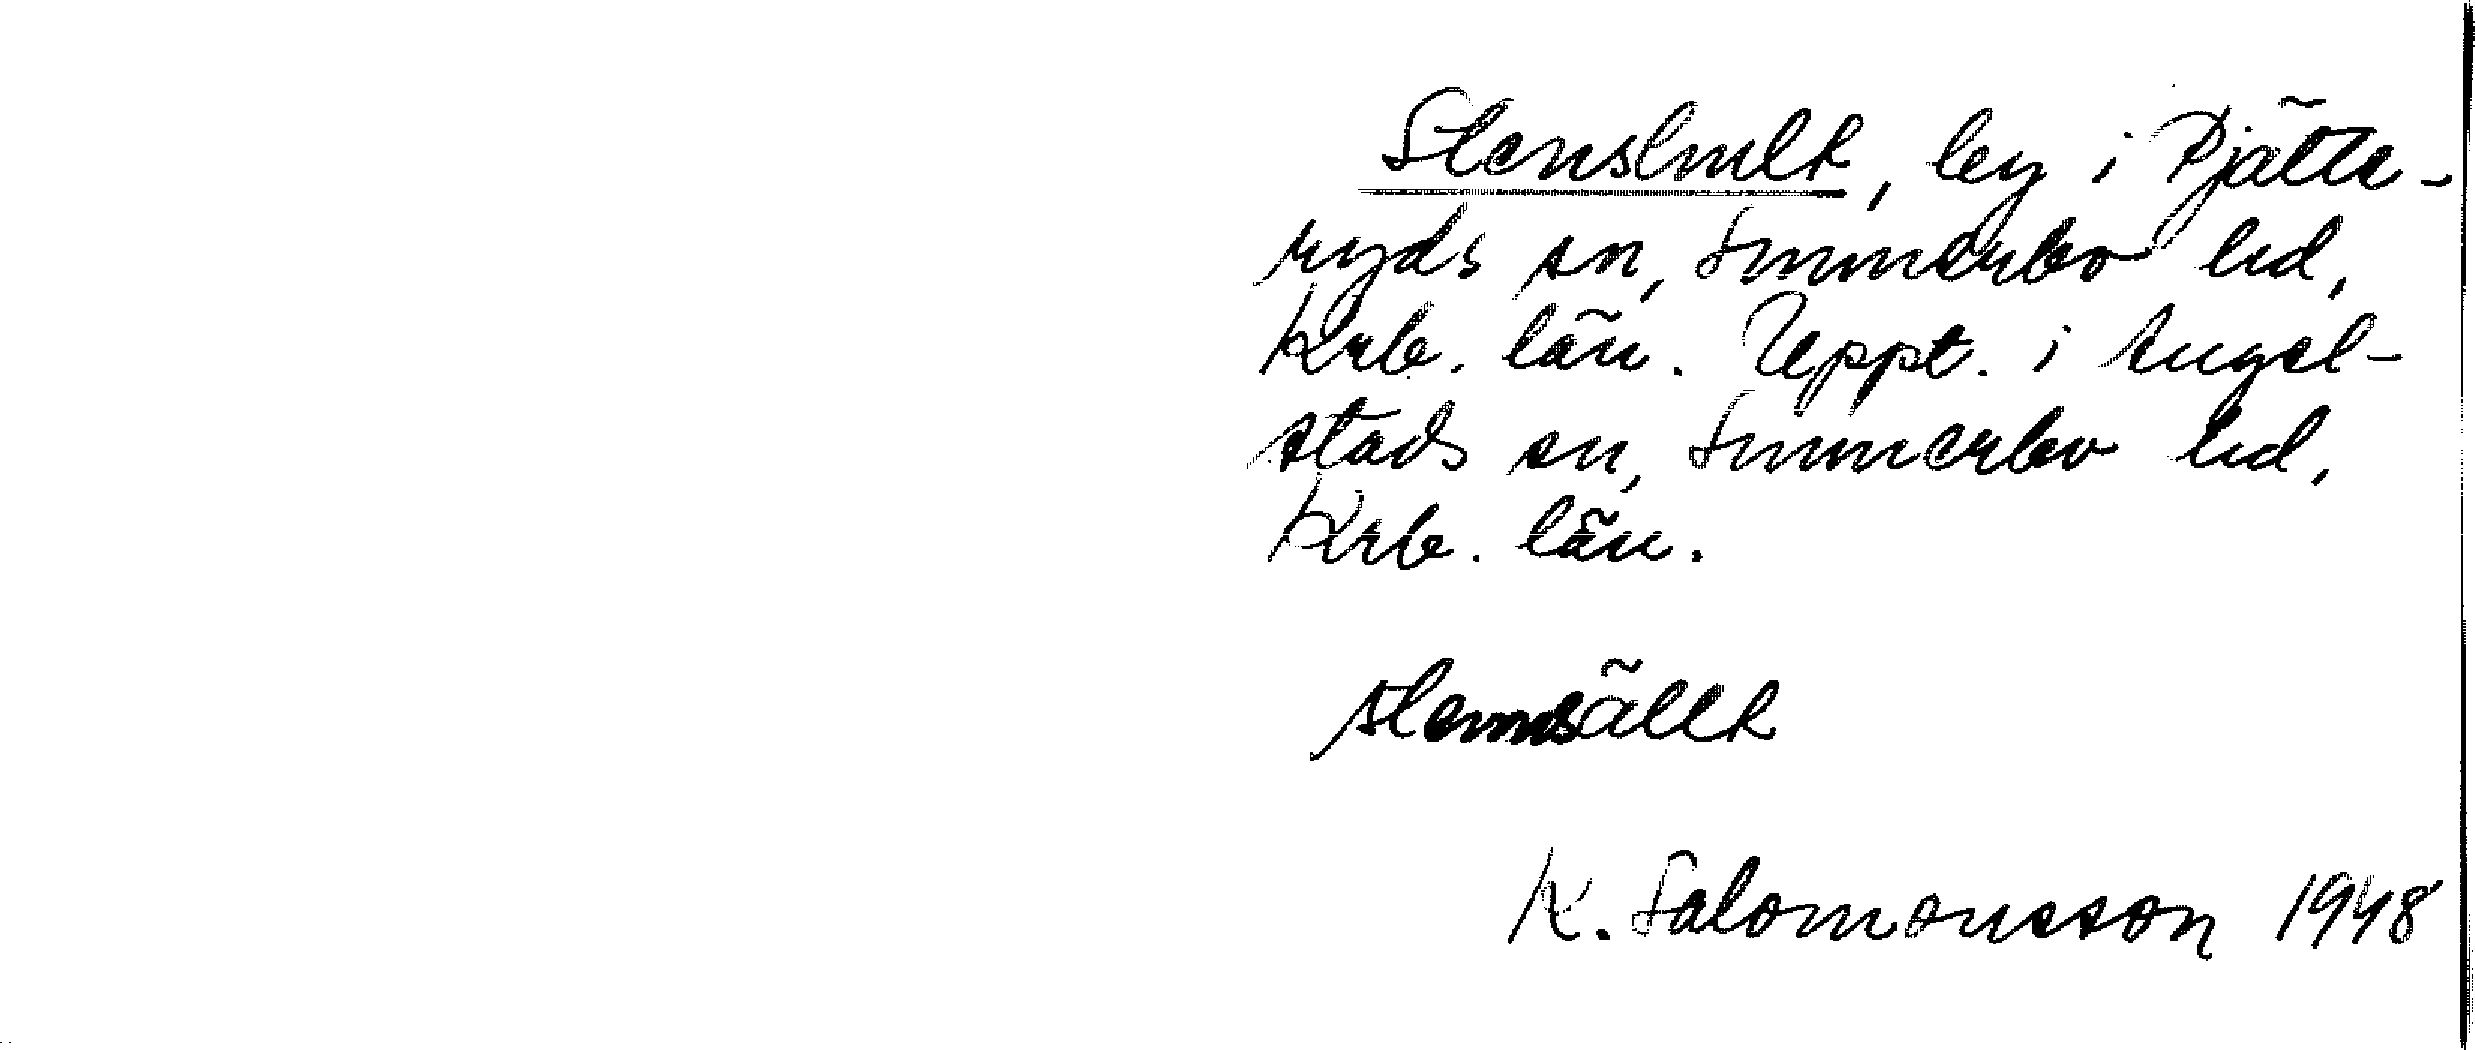 Stenshult, by i Pjätte-
ryds sn, Sunnerbo hd,
Krb. län. Uppt. i Angel-
stads sn, Sunnerbo hd,
Krb. län.
stennsällt
K. Salomonsson 1948